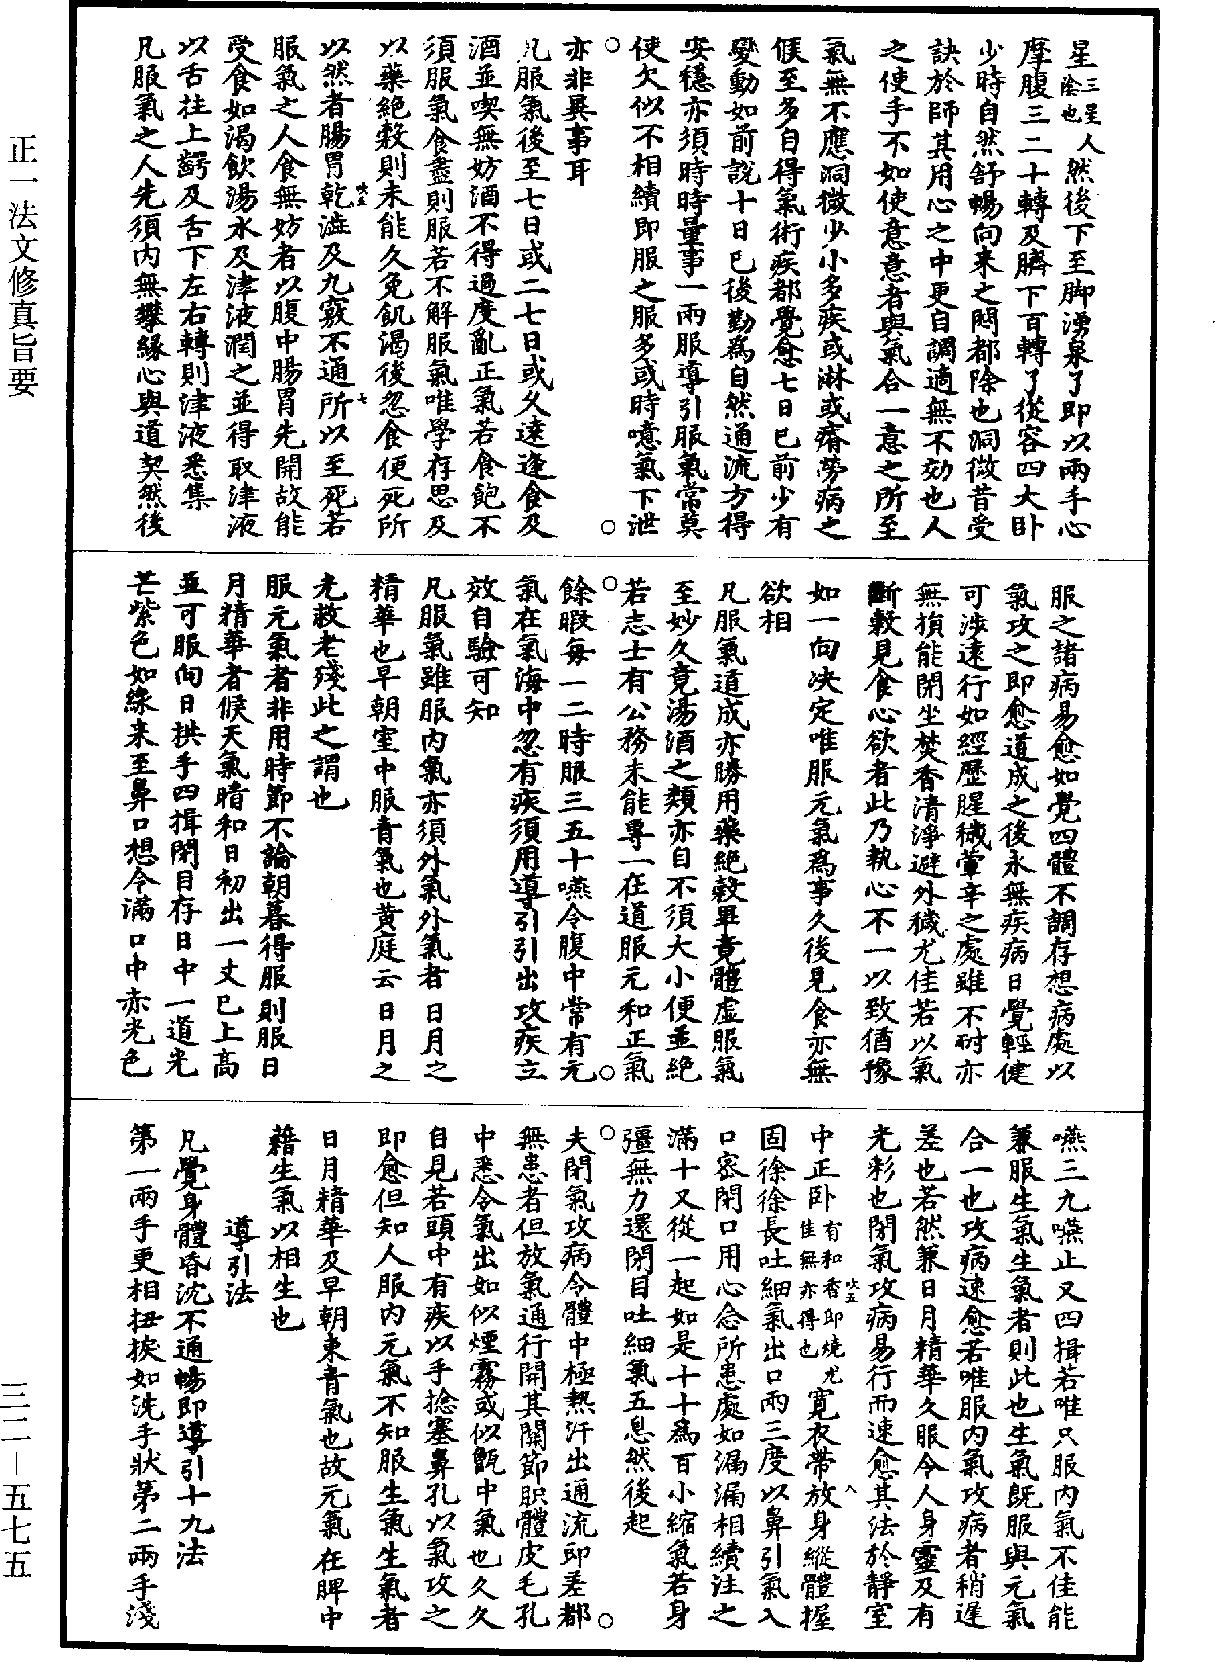 正一法文修真旨要
三二－五七五
星三星陰也人然後下至脚湧泉了即以兩手心
摩腹三二十轉及臍下百轉了從容四大臥
少時自然舒暢向來之悶都除也洞微昔受
訣於師其用心之中更自調適無不効也人
之使手不如使意意者與氣合一意之所至
氣無不應洞微少小多疾或淋或瘠勞病之
候至多自得氣術疾都覺愈七日已前少有
變動如前說十日已後勤為自然通流方得
安穩亦須時時量事一兩服導引服氣常莫
使欠似不相續即服之服多或時噫氣下泄
亦非異事耳
凡服氣後至七日或二七日或久遠逢食及
酒並喫無妨酒不得過度亂正氣若食飽不
須服氣食盡則服若不解服氣唯學存思及
以藥絕穀則未能久免飢渴後忽食便死所
以然者腸胃乾澁及九竅不通所以至死若
服氣之人食無妨者以腹中腸胃先開故能
受食如渴飲湯水及津液潤之並得取津液
以舌拄上齶及舌下左右轉則津液悉集
凡服氣之人先須內無攀緣心與道契然後
服之諸病易愈如覺四體不調存想病處以
氣攻之即愈道成之後永無疾病日覺輕健
可涉遠行如經歷腥穢葷辛之處雖不耐亦
無損能閉坐焚香清淨避外穢尤佳若以氣
斷穀見食心欲者此乃執心不一以致猶豫
如一向決定唯服元氣為事久後見食亦無
欲相
凡服氣道成亦勝用藥絕穀畢竟體虛服氣
至妙久竟湯酒之類亦自不須大小便並絕
若志士有公務未能專一在道服元和正氣
餘暇每一二時服三五十嚥令腹中常有元
氣在氣海中忽有疾須用導引引出攻疾立
效自驗可知
凡服氣雖服內氣亦須外氣外氣者日月之
精華也早朝室中服青氣也黃庭云日月之
光救老殘此之謂也
服元氣者非用時節不論朝暮得服則服日
月精華者候天氣晴和日初出一丈已上高
並可服向日拱手四揖閉目存日中一道光
芒紫色如線來至鼻口想令滿口中赤光色
嚥三九嚥止又四揖若唯只服內氣不佳能
兼服生氣生氣者則此也生氣既服與元氣
合一也攻病速愈若唯服內氣攻病者稍遲
差也若然兼日月精華久服令人身靈及有
光彩也閉氣攻病易行而速愈其法於靜室
中正卧有和香即燒尤佳無亦得也寬衣帶放身縱體握
固徐徐長吐細氣出口兩三度以鼻引氣入
口密閉口用心念所患處如漏漏相續注之
滿十又從一起如是十十為百小縮氣若身
殭無力還閉目吐細氣五息然後起
夫閉氣攻病令體中極熱汗出通流即差都
無患者但放氣通行開其關節眽體皮毛孔
中悉令氣出如似煙霧或似甑中氣也久久
自見若頭中有疾以手捻塞鼻孔以氣攻之
即愈但知人服內元氣不知服生氣生氣者
日月精華及早朝東青氣也故元氣在脾中
藉生氣以相生也
導引法
凡覺身體昏沈不通暢即導引十九法
第一兩手更相扭捩如洗手狀第二兩手淺